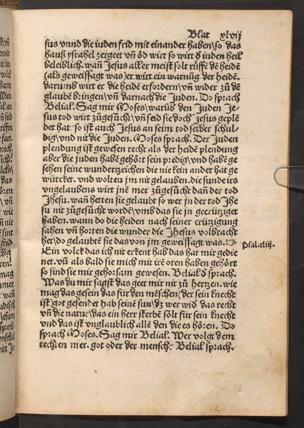 Blat xlvij
sus vnnd die iuden frid mit einander haben / so das
hauß ysrahel zergeet vñ öd wirt so wirt d̉ iuden heil
beleiblich. wañ Jesus
als geweissagt was / er wirt ein der heidē.
darumb wirt er die heidē erfordern / vñ wider zů dē
glaubē bringen / vñ darnach die Juden. Do sprach
Belial. Sag mir Moses / warüb den Juden Je-
sus tod wirt zůgefůcht / vñ seid sie doch Jesus geplē
det hat. so ist auch Jesus an seim tod selber schul-
dig / vnd nit die Juden. Moses sprach. Der Juden
plendung ist gewesen recht als der heidē plendung
aber die juden habē gehört sein predig / vnd habē ge
sehen seine wunderzeichen die nie kein ander hat ge
würcket. vnd wolten jm nit gelauben. die sunde irs
vngelaubens wirt jnē mer zůgesücht dañ der tod
Jhesu. wañ hetten sie gelaubt so wer jn der tod Jhe
su nit zůgesücht wordē / wañ das sie jn gecreütziget
haben. wann do die heiden nach seiner creützigung
sahen vñ horten die wunder die Jhesus volbracht
het / do gelaubtē sie das von jm geweissagt was.
Ein volck das ich nie erkent hab das hat mir gedie
net. vñ als bald sie mich mit irē oren haben gehört
so sind sie mir gehorsam gewesen. Belial d̉ sprach.
Was du mir sagst das geet mir nit zů hertzen. wie
mag das gesein das für den menschen / der sein knecht
ist got gesendet hab seinē sun / Es wer wid̉ das recht
vñ die natur / das ein herr sterbē sölt für sein knecht
vnd das ist vnglaublich allē den die es hören. Do
sprach Moses. Sag mir Belial. Wer volgt dem
rechten mer. got oder der mensch. Belial sprach.